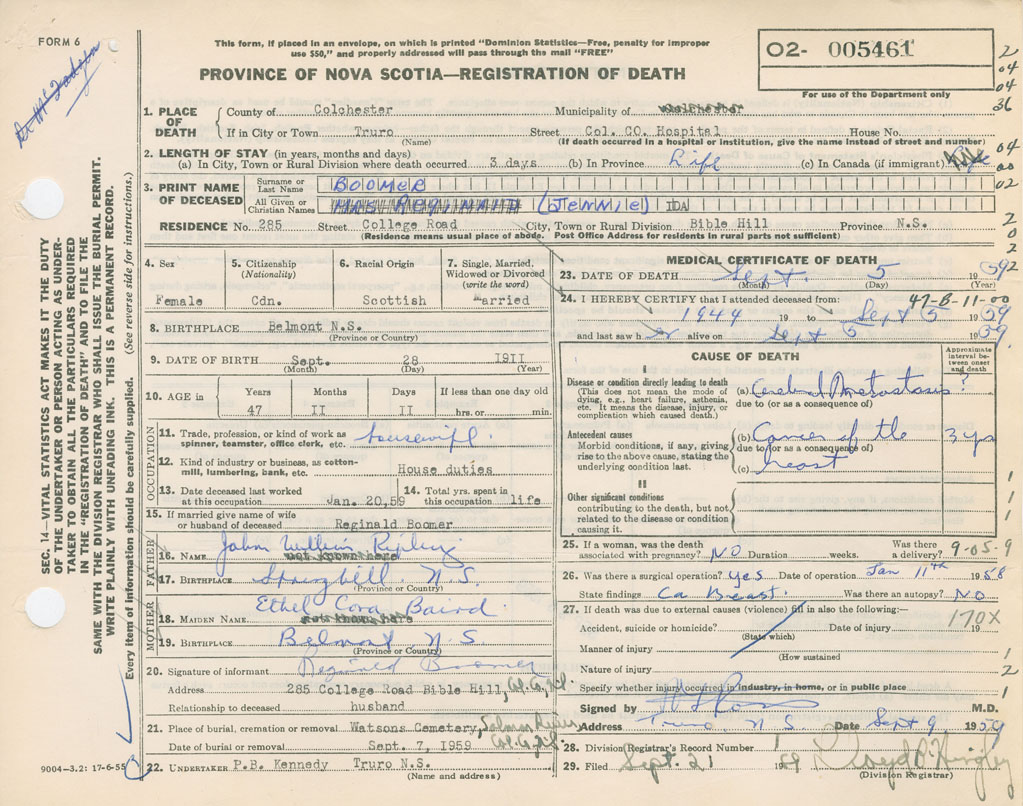 FORM 6
This form, if placed in an envelope, on which is printed "Dominion Statistics—Free, penalty for improper
use $50," and properly addressed will pass through the mail "FREE"
PROVINCE OF NOVA SCOTIA—REGISTRATION OF DEATH
02- 005461
For use of the Department only
2
04
04
36
04
00
02
2
0
2
2
SEC. 14—VITAL STATISTICS ACT MAKES IT THE DUTY
OF THE UNDERTAKER OR PERSON ACTING AS UNDER-
TAKER TO OBTAIN ALL THE PARTICULARS REQUIRED
IN THE "REGISTRATION OF DEATH" AND TO FILE THE
SAME WITH THE DIVISION REGISTRAR WHO SHALL ISSUE THE BURIAL PERMIT.
WRITE PLAINLY WITH UNFADING INK. THIS IS A PERMANENT RECORD.
Every item of information should be carefully supplied. (See reverse side for instructions.)
1. PLACE OF DEATH
County of Colchester Municipality of Colchester
If in City or Town Truro Street Col. CO. Hospital House No.
(Name) (If death occurred in a hospital or institution, give the name instead of street and number)
2. LENGTH OF STAY (in years, months and days)
(a) In City, Town or Rural Division where death occurred 3 days (b) In Province Life (c) In Canada (if immigrant) Life
3. PRINT NAME OF DECEASED
Surname or Last Name BOOMER
All Given or Christian Names MRS REGINALD (JENNIE) IDA
RESIDENCE No. 285 Street College Road City, Town or Rural Division Bible Hill Province N.S.
(Residence means usual place of abode. Post Office Address for residents in rural parts not sufficient)
4. Sex
Female
5. Citizenship (Nationality)
Cdn.
6. Racial Origin
Scottish
7. Single, Married, Widowed or Divorced (write the word)
Married
8. BIRTHPLACE Belmont N.S.
(Province or Country)
9. DATE OF BIRTH Sept. 28 1911
(Month) (Day) (Year)
10. AGE in
Years Months Days If less than one day old
47 II II hrs. or min.
OCCUPATION
11. Trade, profession, or kind of work as spinner, teamster, office clerk, etc. Housewife.
12. Kind of industry or business, as cotton-mill, lumbering, bank, etc. House duties
13. Date deceased last worked at this occupation Jan. 20,59
14. Total yrs. spent in this occupation life
15. If married give name of wife or husband of deceased Reginald Boomer
FATHER
16. NAME John William Ripley not known here
17. BIRTHPLACE Springhill N.S.
MOTHER
18. MAIDEN NAME Ethel Cora Baird. not known here
19. BIRTHPLACE Belmont N.S.
(Province or Country)
20. Signature of informant Reginald Boomer
Address 285 College Road Bible Hill, Col. Co., N.S.
Relationship to deceased husband
21. Place of burial, cremation or removal Watsons Cemetery, Salmon River Col. Co., N.S.
Date of burial or removal Sept. 7, 1959
22. UNDERTAKER P.B. Kennedy Truro N.S.
(Name and address)
9004-3.2: 17-6-55
MEDICAL CERTIFICATE OF DEATH
23. DATE OF DEATH Sept. 5 1959
(Month) (Day) (Year)
47-B-11-00
24. I HEREBY CERTIFY that I attended deceased from:
1944 19 to Sept 5 1959
and last saw her alive on Sept 5 1959.
CAUSE OF DEATH
Approximate interval between onset and death
I
Disease or condition directly leading to death
(This does not mean the mode of dying, e.g., heart failure, asthenia, etc. It means the disease, injury, or complication which caused death.)
(a) Cerebral Metastasis ?
due to (or as a consequence of)
Antecedent causes
Morbid conditions, if any, giving rise to the above cause, stating the underlying condition last.
(b) Cancer of the 3 yrs
due to (or as a consequence of)
(c) breast
II
Other significant conditions
contributing to the death, but not related to the disease or condition causing it.
1
1
25. If a woman, was the death associated with pregnancy? NO Duration weeks. Was there a delivery? 9-05-9
26. Was there a surgical operation? yes Date of operation Jan 11th 1958
State findings Ca Breast. Was there an autopsy? NO
27. If death was due to external causes (violence) fill in also the following:—
170X
Accident, suicide or homicide? Date of injury 19
(State which)
Manner of injury 1
(How sustained
Nature of injury 2
Specify whether injury occurred in industry, in home, or in public place 1
Signed by M.D.
Address Truro N.S. Date Sept 9 1959
28. Division Registrar's Record Number
29. Filed Sept. 21 1959 Lloyd
(Division Registrar)